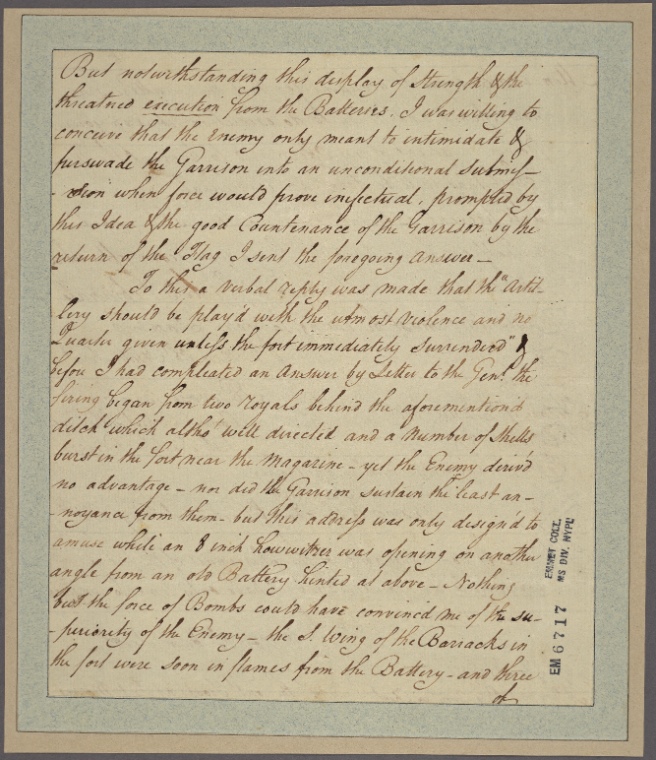 But notwithstanding this display of Strength & the
threatned execution from the Batteries, I was willing to
conceive that the Enemy only meant to intimidate &
perswade the Garrison into an unconditional submis-
-sion when force would prove inefectual, prompted by
this Idea & the good Countenance of the Garrison by the
return of the Flag I sent the foregoing answer—
To this a verbal reply was made that the "Artil-
lery should be play'd with the utmost violence and no
Quarter given unless the fort immediately surrendered" &
before I had compleated an Answer by Letter to the Genl. the
firing began from two royals behind the aforementiond
ditch which altho' well directed and a number of Shells
burst in the fort near the magazine - yet the Enemy deriv'd
no advantage - nor did the Garrison sustain the least an-
-noyance from them - but this address was only design'd to
amuse while an 8 inch howwitzer was opening on another
angle from an old Battery hinted at above - Nothing
but the force of Bombs could have convinced me of the su-
-periority of the Enemy - the S. Wing of the Barracks in
the fort were soon in flames from the Battery - and three
of
EMMET COLL.
MS DIV. NYPL
EM 6717